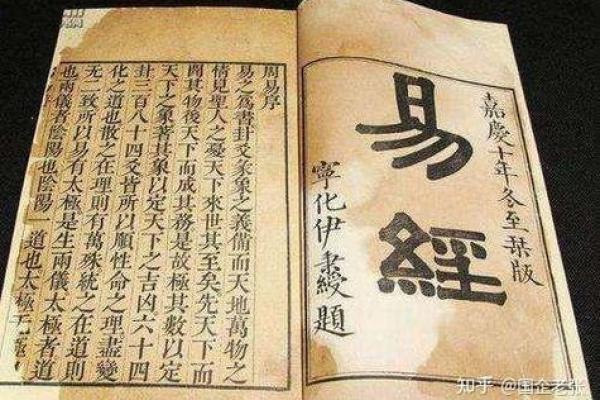 嘉慶十年冬至栞版
易經
寧化伊秉綬題
周易序
易之爲書卦爻彖象之義備而天地萬物之
情見聖人之憂天下來世其至矣先天下而
開其物後天下而成其務是故極其數以定
天下之象著其象以定天下之吉凶六十四
卦三百八十四爻皆所以順性命之理盡變
化之道也散之在理則有萬殊統之在道則
无二致所以易有太極是生兩儀太極者道
也兩儀者陰陽也陰陽一道也太極无極
知乎 @国企老张